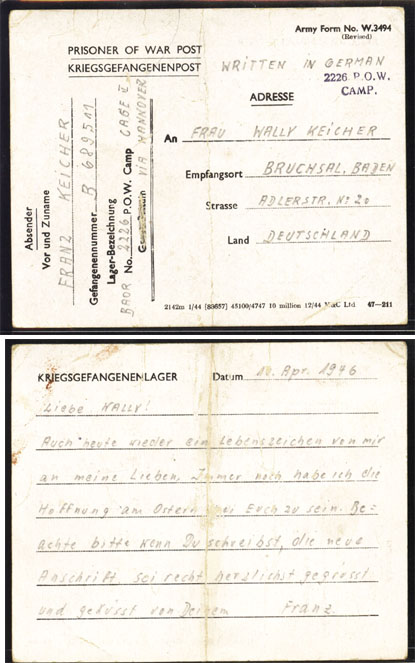 Army Form No. W.3494
(Revised)
PRISONER OF WAR POST
KRIEGSGEFANGENENPOST
WRITTEN IN GERMAN
2226 P.O.W.
CAMP.
ADRESSE
An FRAU WALLY KEICHER
Empfangsort BRUCHSAL, BADEN
Strasse ADLERSTR. No 20
Land DEUTSCHLAND
Absender
Vor und Zuname
FRANZ KEICHER
Gefangenennummer B 689511
Lager-Bezeichnung
BAOR No. 2226 P.O.W. Camp CAGE
VIA HANNOVER
2142m 1/44 [83657] 45100/4747 10 million 12/44 Ltd 47—211
KRIEGSGEFANGENENLAGER Datum Apr. 1946
Liebe WALLY!
Auch heute wieder ein Lebenszeichen von mir
an meine Lieben. Immer noch habe ich die
Hoffnung am Ostern bei Euch zu sein. Be=
achte bitte wenn Du schreibst, die neue
Anschrift. sei recht herzlichst gegrüsst
und geküsst von Deinem Franz.